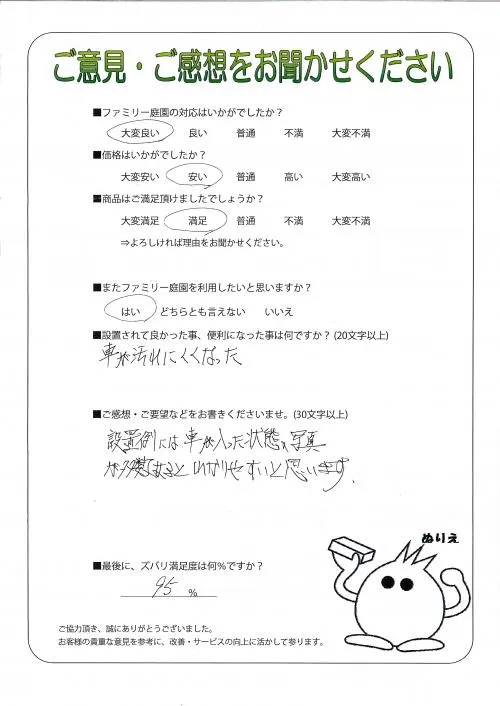 ご意見・ご感想をお聞かせください
■ファミリー庭園の対応はいかがでしたか？
大変良い 良い 普通 不満 大変不満
■価格はいかがでしたか？
大変安い 安い 普通 高い 大変高い
■商品はご満足頂けましたでしょうか？
大変満足 満足 普通 不満 大変不満
⇒よろしければ理由をお聞かせください。
■またファミリー庭園を利用したいと思いますか？
はい どちらとも言えない いいえ
■設置されて良かった事、便利になった事は何ですか？ (20文字以上)
車が汚れにくくなった
■ご感想・ご要望などをお書きくださいませ。(30文字以上)
設置例には車が入った状態の写真
が あると わかりやすいと思います。
ぬりえ
■最後に、ズバリ満足度は何％ですか？
95 %
ご協力頂き、誠にありがとうございました。
お客様の貴重な意見を参考に、改善・サービスの向上に活かして参ります。